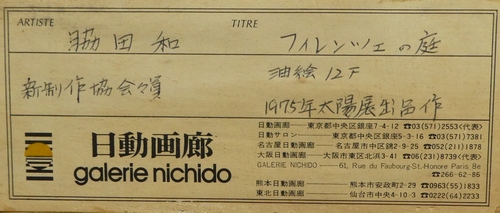 ARTISTE
TITRE
脇田和
フィレンツェの庭
新制作協会々員
油絵12F
1975年太陽展出品作
日動画廊
galerie nichido
日動画廊――東京都中央区銀座7-4-12 ☎03(571)2553<代表>
日動サロン――東京都中央区銀座5-3-16 ☎03(571)7381
名古屋日動画廊――名古屋市中区錦2-9-25 ☎052(211)1878
大阪日動画廊――大阪市東区北浜3-41 ☎06(231)8739<代表>
GALERIE NICHIDO――61, Rue du Faubourg-St-Honoré Paris 8e
☎266-62-86
熊本日動画廊――熊本市安政町2-29 ☎0963(55)1833
東北日動画廊――仙台市中央4-10-3 ☎0222(64)2233